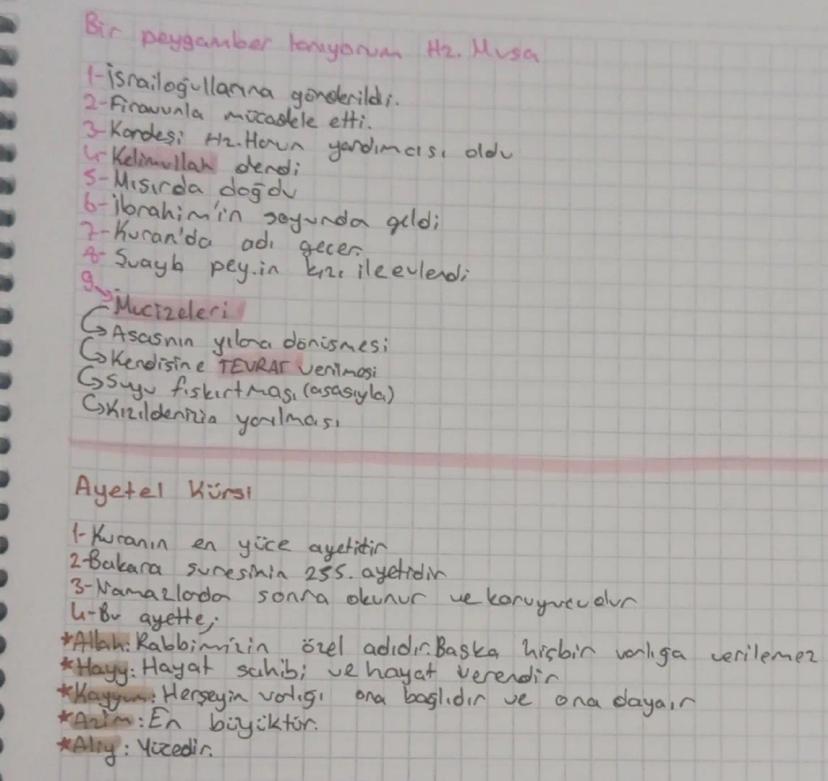 Bir peygamber tanıyorum Hz. Musa
1-İsrailoğullarına gönderildi.
2-Firavunla mücadele etti.
3-Kardeşi Hz. Harun yardımcısı oldu
4-Kelimullah dendi
5-Mısırda doğdu
6-İbrahim'in soyunda geldi
7-Kuran'da adı geçer.
8-Şuayb pey.in kızı ile evlendi
9-
Mucizeleri
↳Asasının yılana dönüşmesi
↳Kendisine TEVRAT verilmesi
↳Suyu fışkırtması (asasıyla)
↳Kızıldenizin yarılması
Ayetel Kürsi
1-Kuranın en yüce ayetidir
2-Bakara suresinin 255. ayetidir
3-Namazlardan sonra okunur ve koruyucudur
4-Bu ayette;
*Allah: Rabbimizin özel adıdır. Başka hiçbir varlığa verilemez
*Hayy: Hayat sahibi ve hayat verendir
*Kayyum: Herşeyin varlığı ona bağlıdır ve ona dayanır
*Azim: En büyüktür.
*Aliy: Yücedir.